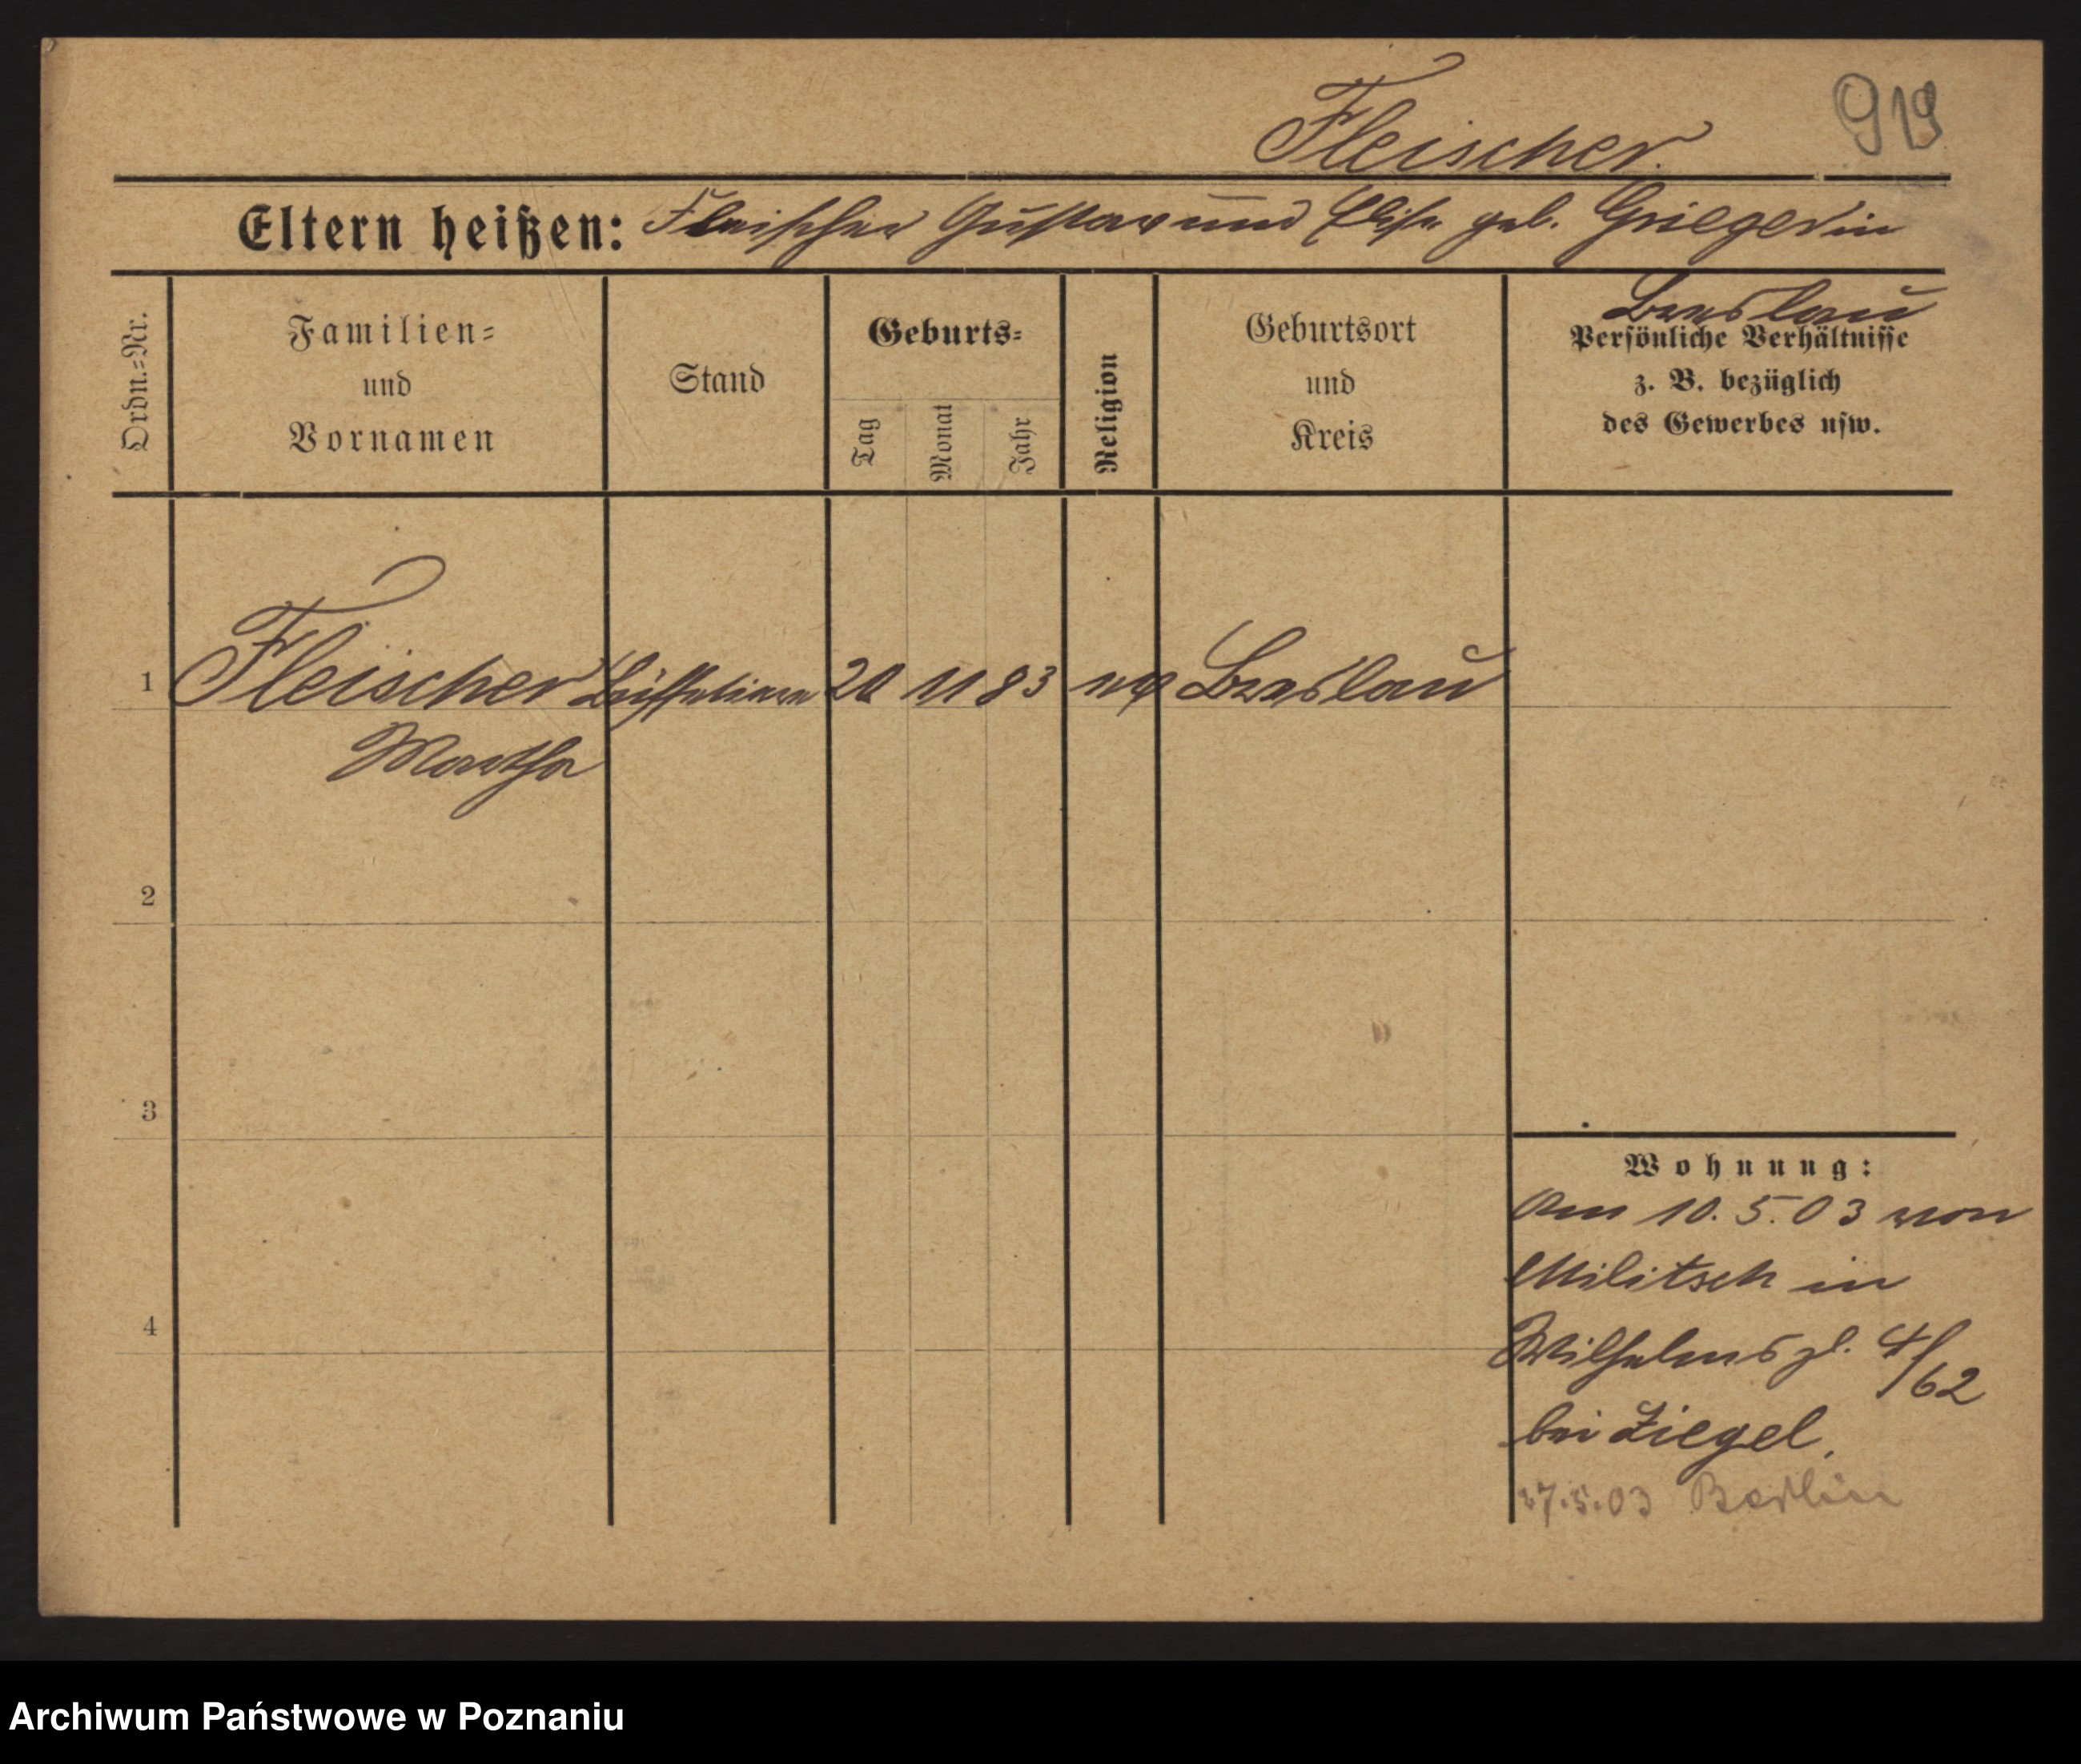 919
Fleischer.
Eltern heißen: Fleischer Gustav und Elise geb. Grieger in
Breslau
Ordn.=Nr.
Familien=
und
Vornamen
Stand
Geburts=
Tag
Monat
Jahr
Religion
Geburtsort
und
Kreis
Persönliche Verhältnisse
z. B. bezüglich
des Gewerbes usw.
1 Fleischer 20 11 83 Breslau
Martha
2
3
4
Wohnung:
Am 10.5.03 von
Militsch in
Wilhelmspl. 4/62
bei Ziegel.
27.5.03 Berlin
Archiwum Państwowe w Poznaniu